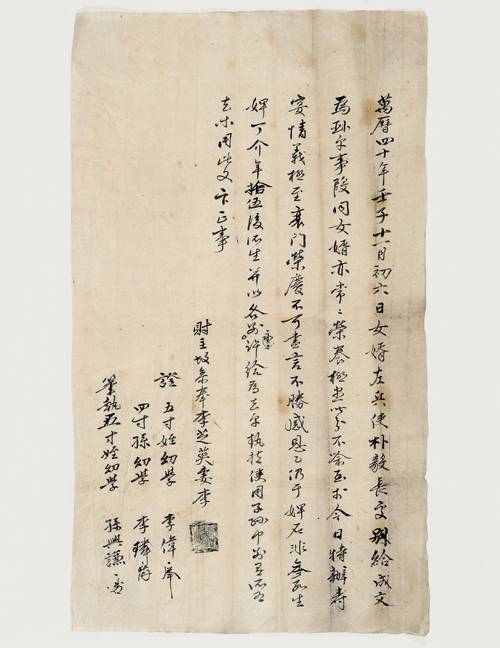 萬曆四十年壬子十一月初六日女婿左兵使朴毅長處別給成文
爲臥乎事段同女婿亦常〻榮養極盡叱分不喩至於今日特辦壽
宴情義極至衰門榮慶不可盡言不勝感恩乙仍于婢石非參所生
婢丫介年拾伍後所生幷以各別許給爲去乎執持使用子孫中
去等用此文卞正事
財主故參奉李芝英妻李
證 五寸姪幼學 李偉
四寸孫幼學 李璘
筆執五寸姪幼學 孫興謙